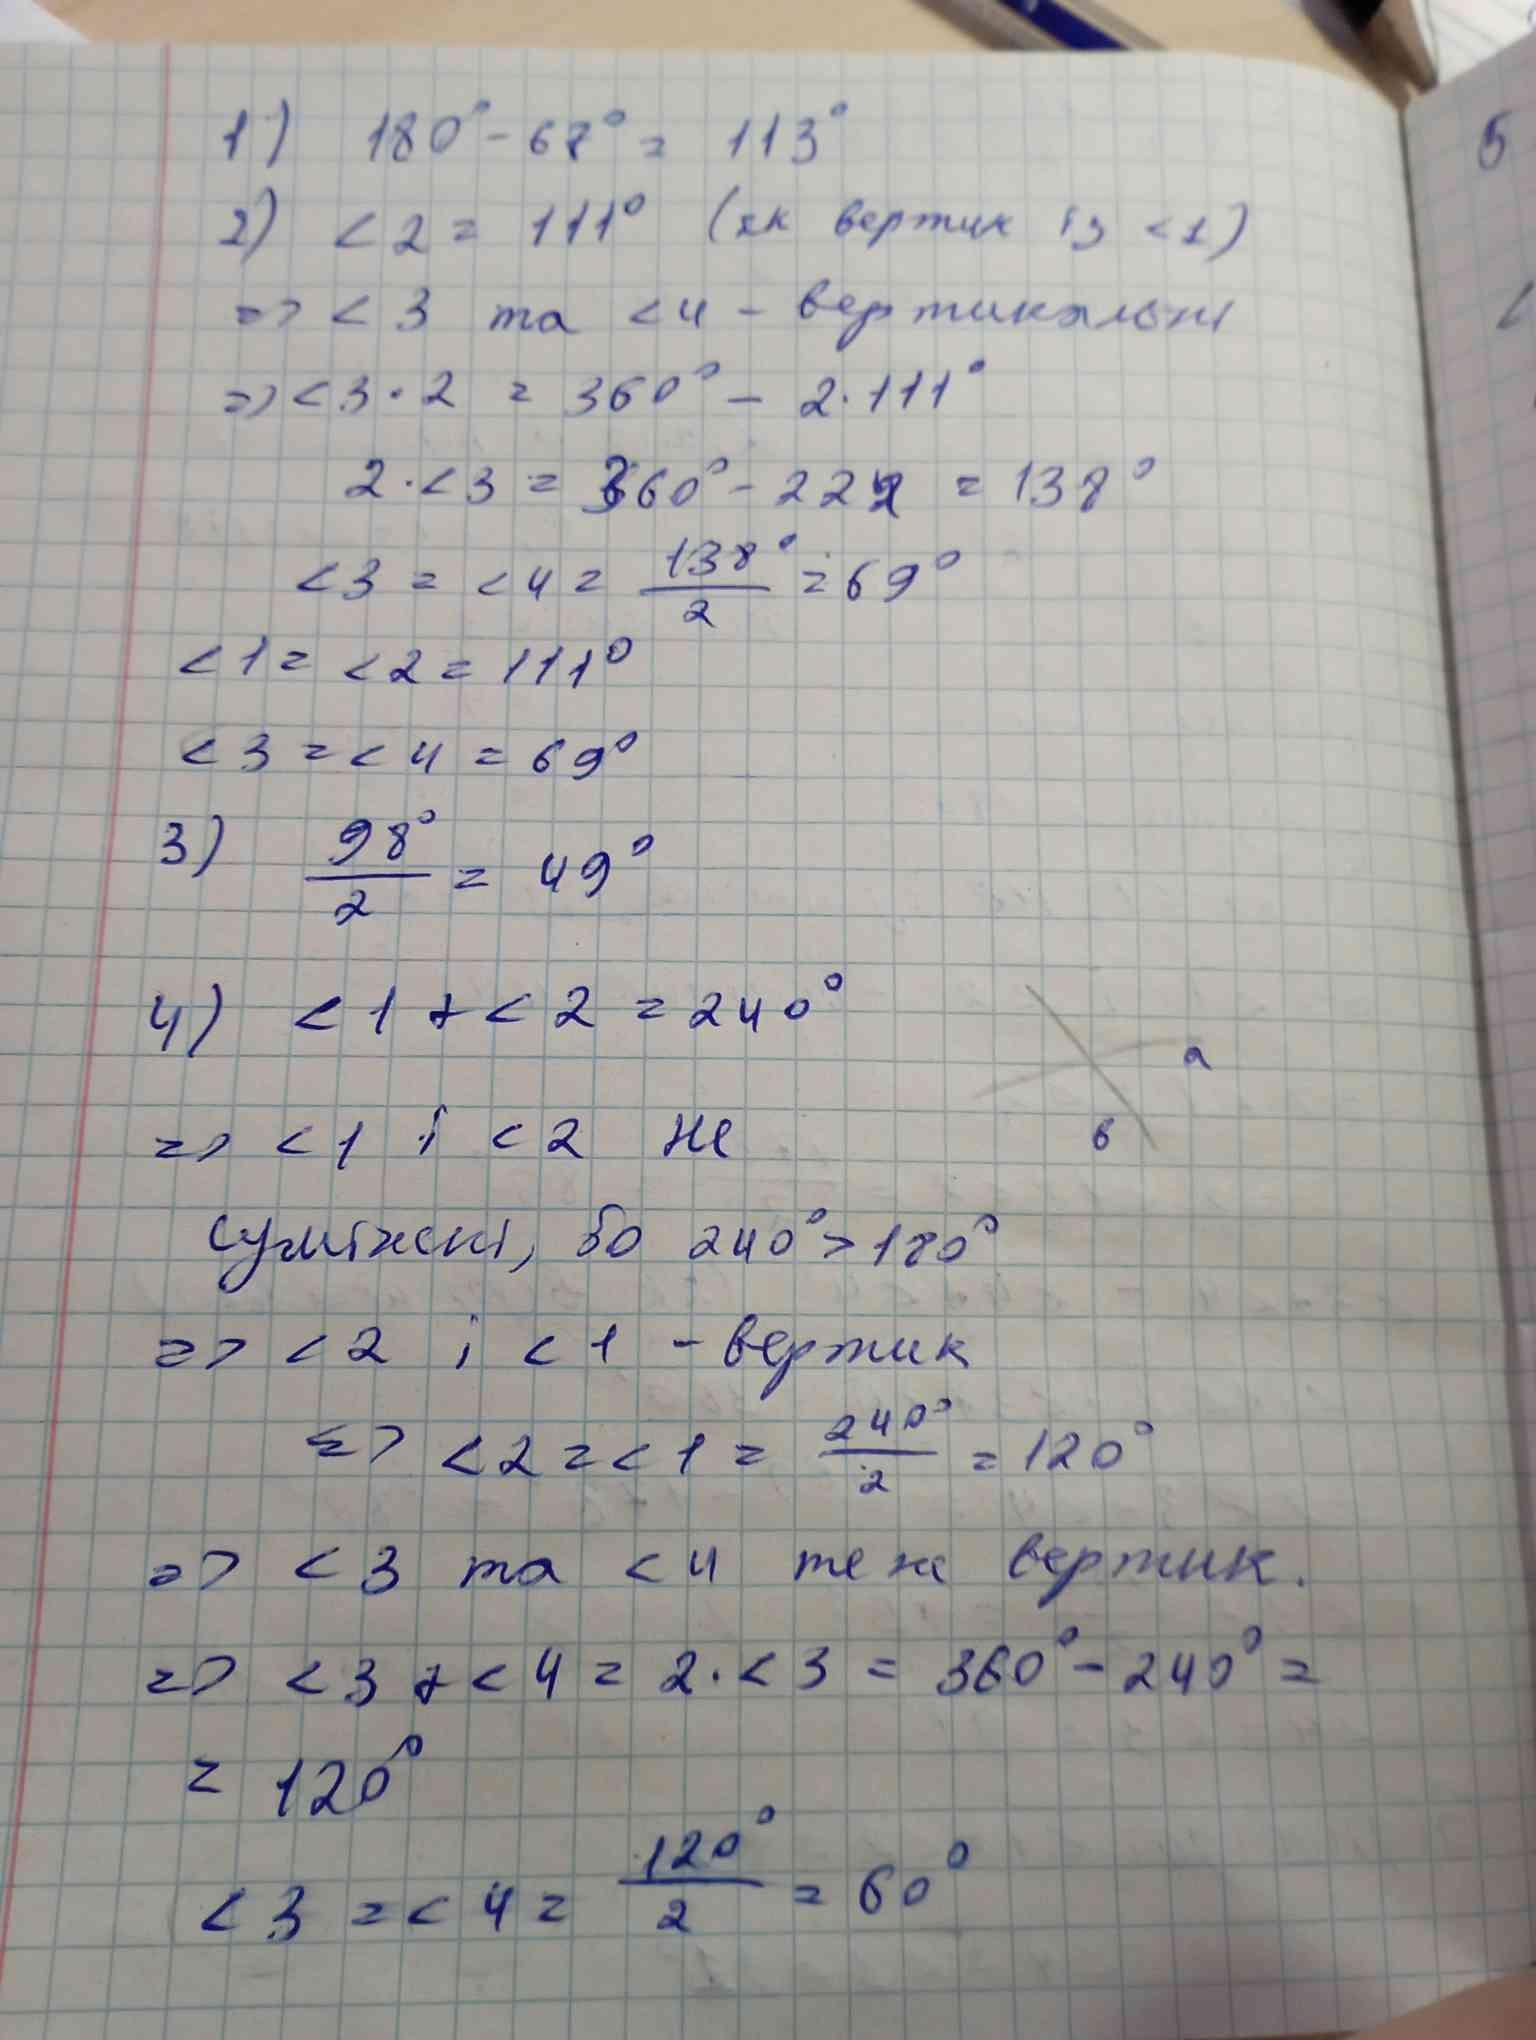 1) 180° - 67° = 113°
2) <2 = 111° (як вертик із <1)
=> <3 та <4 - вертикальні
=> <3 · 2 = 360° - 2 · 111°
2 · <3 = 360° - 222 = 138°
<3 = <4 = 138°/2 = 69°
<1 = <2 = 111°
<3 = <4 = 69°
3) 98°/2 = 49°
4) <1 + <2 = 240°
a
=> <1 і <2 не
в
суміжні, бо 240° > 180°
=> <2 і <1 - вертик
=> <2 = <1 = 240°/2 = 120°
=> <3 та <4 теж вертик.
=> <3 + <4 = 2 · <3 = 360° - 240° =
= 120°
<3 = <4 = 120°/2 = 60°
5